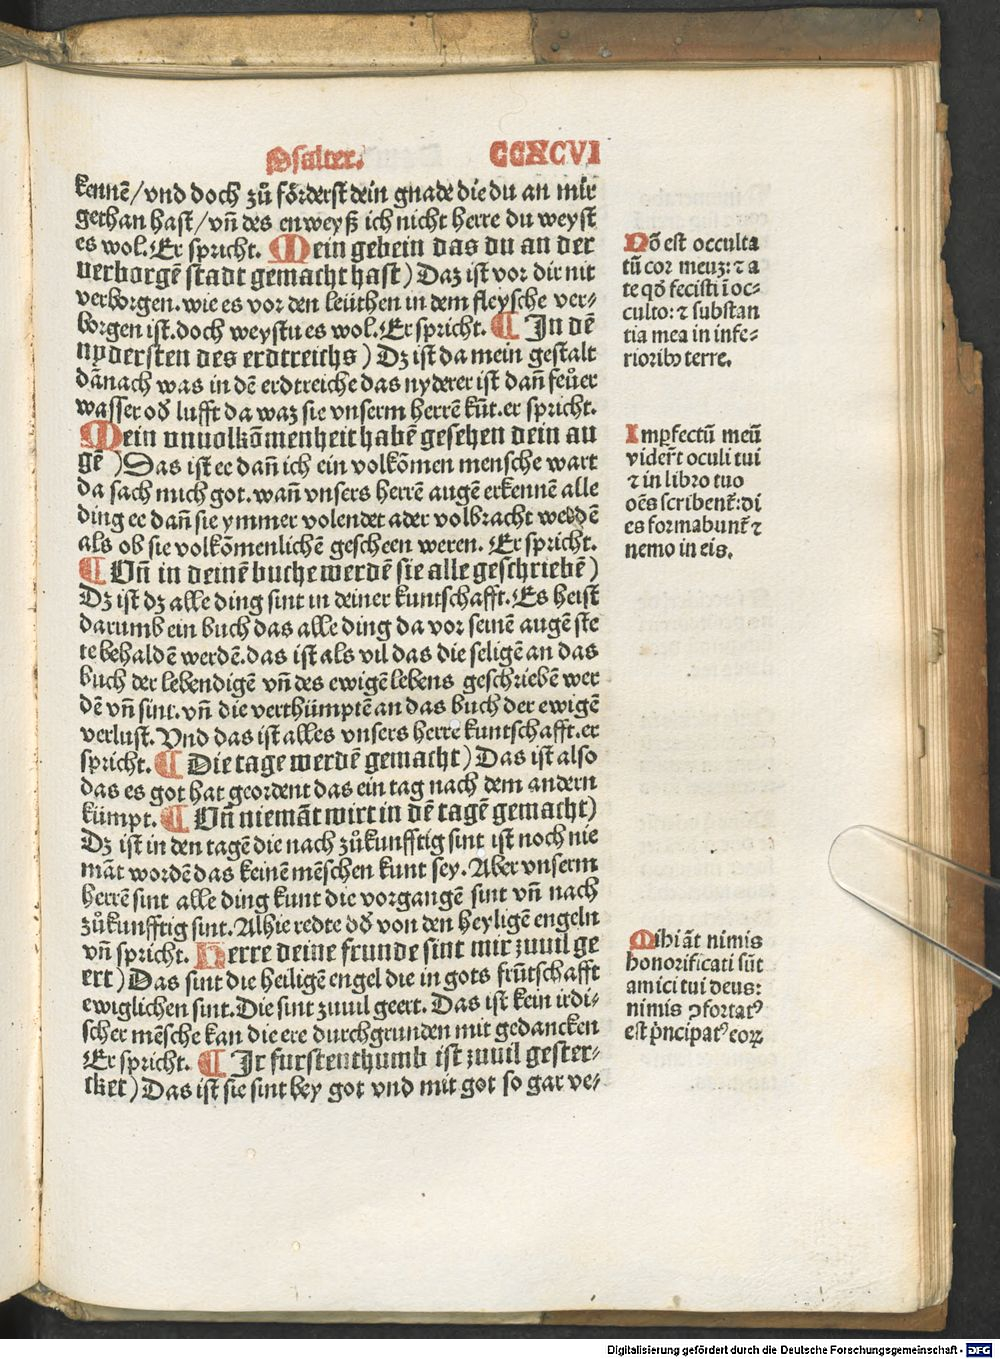 Psalter. CCXCVI
kennē/vnd doch zů förderst dein gnade die du an mir
gethan hast/vñ des enweyß ich nicht herre du weyst
es wol. Er spricht. Mein gebein das du an der
verborgē stadt gemacht hast) Daz ist vor dir nit
verborgen. wie es vor den leüthen in dem fleysche ver⸗
borgen ist. doch weystu es wol. Er spricht. ¶ In dē
nydersten des erdtreichs) Dz ist da mein gestalt
dānach was in dē erdtreiche das nyderer ist dañ feůer
wasser oð lufft da waz sie vnserm herrē kūt. er spricht.
Mein vnuolkōmenheit habē gesehen dein au
gē) Das ist ee dañ ich ein volkōmen mensche wart
da sach mich got. wañ vnsers herrē augē erkennē alle
ding ee dañ sie ymmer volendet ader volbracht werdē
als ob sie volkōmenlichē gescheen weren. Er spricht.
¶ Vñ in deinē buche werdē sie alle geschriebē)
Dz ist dz alle ding sint in deiner kuntschafft. Es heist
darumb ein buch das alle ding da vor seinē augē ste
te behaldē werdē. das ist als vil das die seligē an das
buch der lebendigē vñ des ewigē lebens geschriebē wer
dē vñ sint. vñ die verthümptē an das buch der ewigē
verlust. Vnd das ist alles vnsers herre kuntschafft. er
spricht. ¶ Die tage werdē gemacht) Das ist also
das es got hat geordent das ein tag nach dem andern
kümpt. ¶ Vñ niemāt wirt in dē tagē gemacht)
Dz ist in den tagē die nach zůkunfftig sint ist noch nie
māt wordē das keinē mēschen kunt sey. Aber vnserm
herrē sint alle ding kunt die vorgangē sint vñ nach
zůkunfftig sint. Alhie redte dð von den heyligē engeln
vñ spricht. Herre deine frunde sint mir zuuil ge
ert) Das sint die heiligē engel die in gots frūtschafft
ewiglichen sint. Die sint zuuil geert. Das ist kein irdi⸗
scher mēsche kan die ere durchgrunden mit gedancken
Er spricht. ¶ Ir furstenthumb ist zuuil gester⸗
cket) Das ist sie sint bey got vnd mit got so gar ve⸗
Nō est occulta
tū cor meuz: ⁊ a
te qð fecisti ī oc⸗
culto: ⁊ substan
tia mea in infe⸗
rioribꝰ terre.
Imꝑfectū meū
vider̄t oculi tui
⁊ in libro tuo
oēs scribent̄: di
es formabunt̄ ⁊
nemo in eis.
Mihi āt nimis
honorificati sūt
amici tui deus:
nimis ꝯfortatꝰ
est p̄ncipatꝰ eoꝝ.
Digitalisierung gefördert durch die Deutsche Forschungsgemeinschaft - DFG